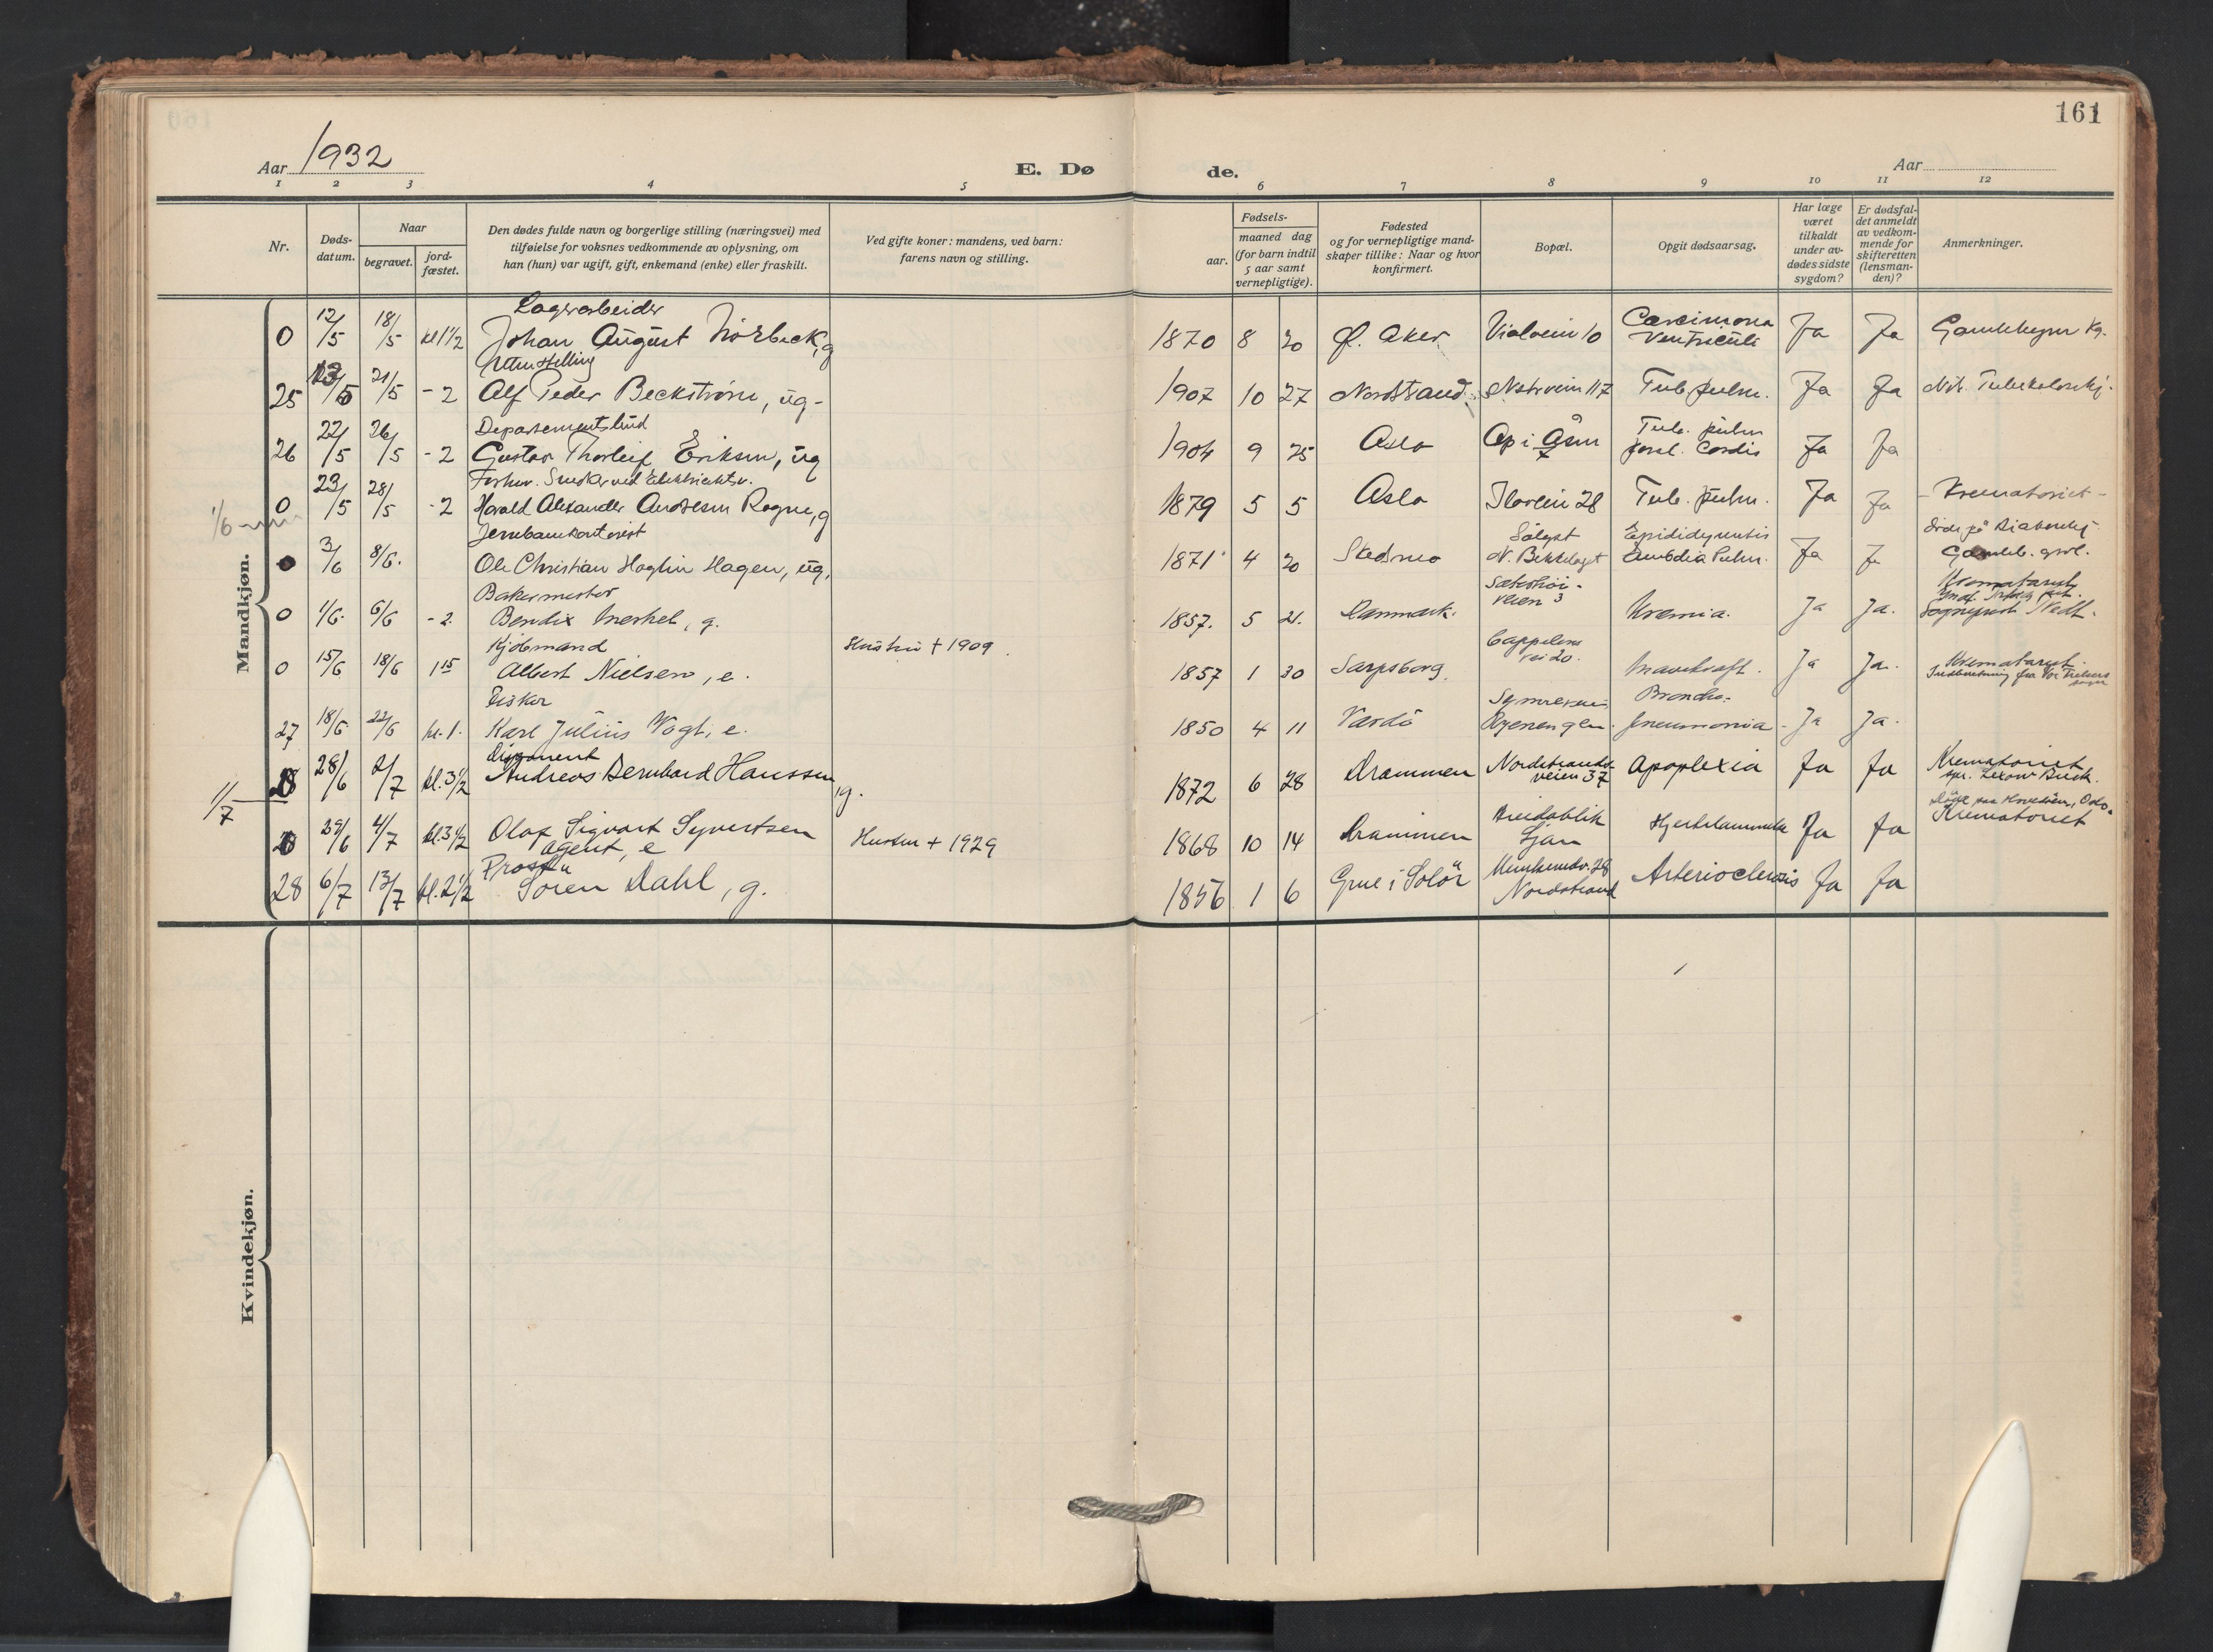 161
Aar 1932
E. Dø
de.
Aar
1 2 3 4 5 6 7 8 9 10 11 12
Nr.
Døds-
datum.
Naar
begravet.
jord-
fæstet.
Den dødes fulde navn og borgerlige stilling (næringsvei) med
tilføielse for voksnes vedkommende av oplysning, om
han (hun) var ugift, gift, enkemand (enke) eller fraskilt.
Ved gifte koner: mandens, ved barn:
farens navn og stilling.
Fødsels-
aar.
maaned dag
(for barn indtil
5 aar samt
vernepligtige).
Fødested
og for vernepligtige mand-
skaper tillike: Naar og hvor
konfirmert.
Bopæl.
Opgit dødsaarsag.
Har læge
været
tilkaldt
under av-
dødes sidste
sygdom?
Er dødsfal-
det anmeldt
av vedkom-
mende for
skifteretten
(lensman-
den)?
Anmerkninger.
Mandkjøn.
Lagerarbeider
0 12/5 18/5 kl 1 1/2 Johan August Nörbeck, g 1870 8 20 Ø. Aker Violveien 10 Carcinoma
Ventriculi Ja Ja
Uten stilling
25 13/5 21/5 - 2 Alf Peder Beckström, ug- 1907 10 27 Nordstrand Tub. pulm. Ja Ja
Departementsbud
26 22/5 26/5 - 2 Gustav Thorleif Eriksen, ug 1904 9 25 Oslo Tub. pulm
Cordis Ja Ja
Forhv. Snekker ved
0 23/5 28/5 - 2 Harald Alexander Andresen Rogne, g 1879 5 5 Oslo 28 Tub. pulm. Ja Ja - Krematoriet -
1/6
Jernbanekontorist
3/6 8/6. Ole Christian Hagen, ug. 1871 4 20 Skedsmo N. Bekkelaget Ja Ja
Bakermester
0 1/6. 6/6 - 2. Bendix Merkel, g. 1857. 5 21. Danmark. veien 3 Uremia. Ja Ja.
Kjöbmand
0 15/6 18/6 1 15 Albert Nielsen, e. Hustru + 1909. 1857 1 30 Sarpsborg. Cappelens
vei 20. Ja Ja.
Fisker
27 18/6. 22/6 kl. 1. Karl Julius Vogt, e. 1850 4 11 Vardö Broncho-
pneumonia - Ja Ja.
Disponent
28/6 2/7 kl. 3 1/2 Andreas Bernhard Hanssen, g. 1872 6 28 Drammen Nordstrands-
veien 37 Apoplexia Ja Ja Krematoriet
1/7
29/6 4/7 kl. 3 1/2 Olaf Sigvart Syvertsen
agent, e Hustru + 1929 1868 10 14 Drammen Breidablik
Ljan Hjertelammelse Ja Ja Krematoriet
28 6/7 13/7 kl. 2 1/2 Sören Dahl, g. 1856 1 6 Grue i Solör
Nordstrand Arteriosclerosis Ja Ja
Kvindekjøn.